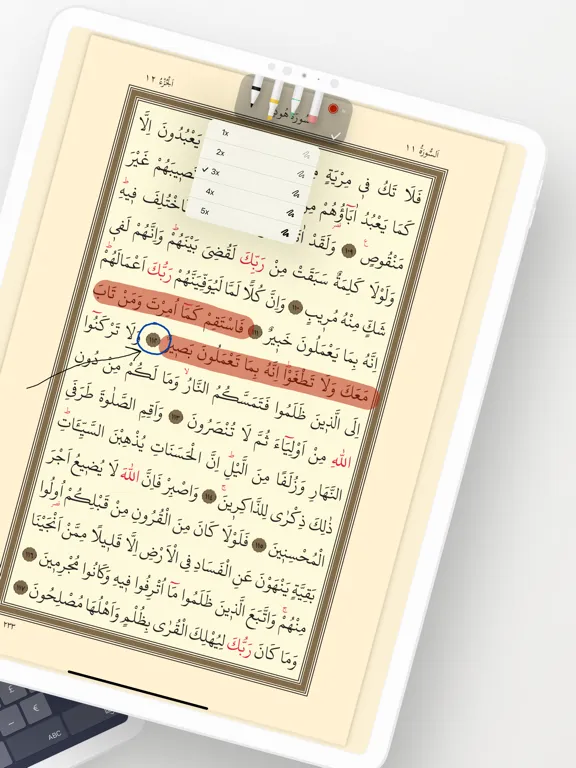 اَلْجُزْءُ ١٢
سُورَةُ هُودٍ
اَلسُّورَةُ ١١
1x
2x
3x
4x
5x
فَلَا تَكُ فٖي مِرْيَةٍ يَعْبُدُونَ اِلَّا
كَمَا يَعْبُدُ اٰبَٓاؤُ۬هُمْ مِنْ نَصٖيبَهُمْ غَيْرَ
مَنْقُوصٍ ١٠٩ وَلَقَدْ فَاخْتُلِفَ فٖيهِ
وَلَوْلَا كَلِمَةٌ سَبَقَتْ مِنْ رَبِّكَ لَقُضِيَ بَيْنَهُمْ وَاِنَّهُمْ لَفٖي
شَكٍّ مِنْهُ مُرٖيبٍ ١١٠ وَاِنَّ كُلًّا لَمَّا لَيُوَفِّيَنَّهُمْ رَبُّكَ اَعْمَالَهُمْ
اِنَّهُ بِمَا يَعْمَلُونَ خَبٖيرٌ ١١١ فَاسْتَقِمْ كَمَٓا اُمِرْتَ وَمَنْ تَابَ
مَعَكَ وَلَا تَطْغَوْا اِنَّهُ بِمَا تَعْمَلُونَ بَصٖيرٌ ١١٢ وَلَا تَرْكَنُٓوا
اِلَى الَّذٖينَ ظَلَمُوا فَتَمَسَّكُمُ النَّارُ وَمَا لَكُمْ مِنْ دُونِ
اللّٰهِ مِنْ اَوْلِيَٓاءَ ثُمَّ لَا تُنْصَرُونَ ١١٣ وَاَقِمِ الصَّلٰوةَ طَرَفَيِ
النَّهَارِ وَزُلَفًا مِنَ الَّيْلِ اِنَّ الْحَسَنَاتِ يُذْهِبْنَ السَّيِّـَٔاتِ
ذٰلِكَ ذِكْرٰى لِلذَّاكِرٖينَ ١١٤ وَاصْبِرْ فَاِنَّ اللّٰهَ لَا يُضٖيعُ اَجْرَ
الْمُحْسِنٖينَ ١١٥ فَلَوْلَا كَانَ مِنَ الْقُرُونِ مِنْ قَبْلِكُمْ اُو۬لُوا
بَقِيَّةٍ يَنْهَوْنَ عَنِ الْفَسَادِ فِي الْاَرْضِ اِلَّا قَلٖيلًا مِمَّنْ اَنْجَيْنَا
مِنْهُمْ وَاتَّبَعَ الَّذٖينَ ظَلَمُوا مَٓا اُتْرِفُوا فٖيهِ وَكَانُوا مُجْرِمٖينَ ١١٦
وَمَا كَانَ رَبُّكَ لِيُهْلِكَ الْقُرٰى بِظُلْمٍ وَاَهْلُهَا مُصْلِحُونَ ١١٧
٢٣٣
£
€
ABC